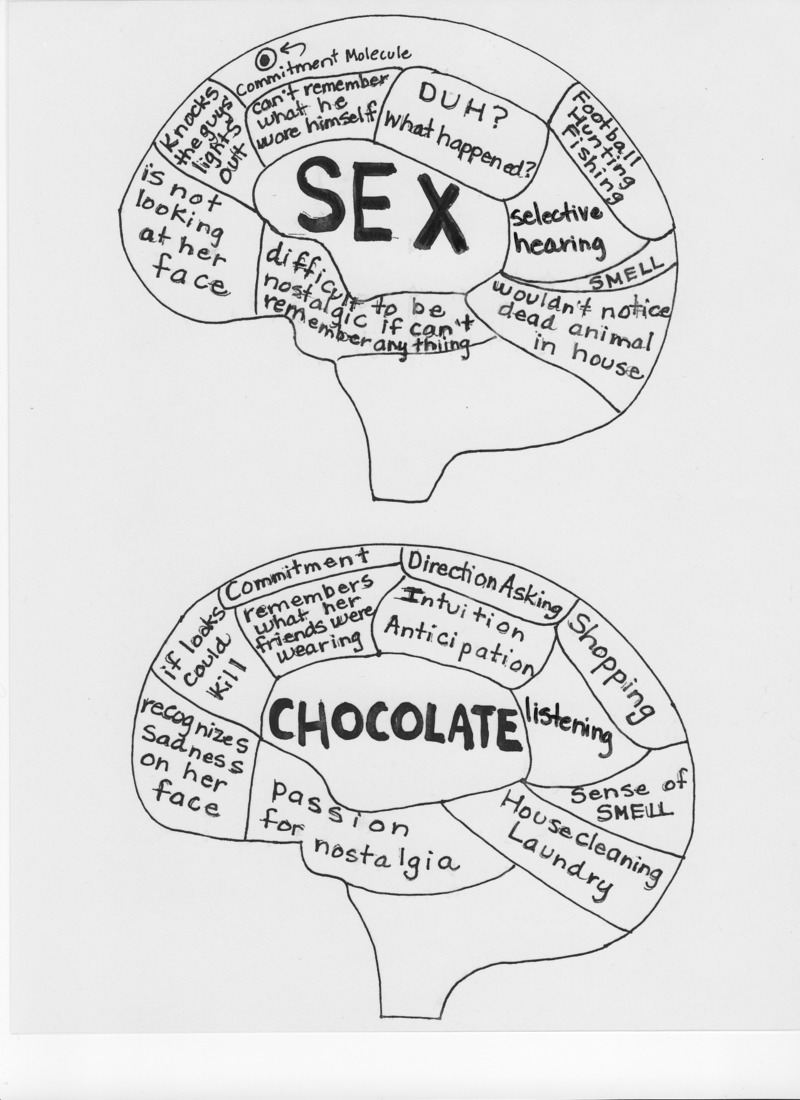 Commitment Molecule
Knocks
the guys
lights
out
can't remember
what he
wore himself
DUH?
What happened?
Football
Hunting
Fishing
is not
looking
at her
face
SEX
selective
hearing
SMELL
difficult to be
nostalgic if can't
remember anything
wouldn't notice
dead animal
in house
Commitment
Direction Asking
if looks
could
kill
remembers
what her
friends were
wearing
Intuition
Anticipation
Shopping
recognizes
sadness
on her
face
CHOCOLATE
listening
Sense of
SMELL
passion
for nostalgia
Housecleaning
Laundry